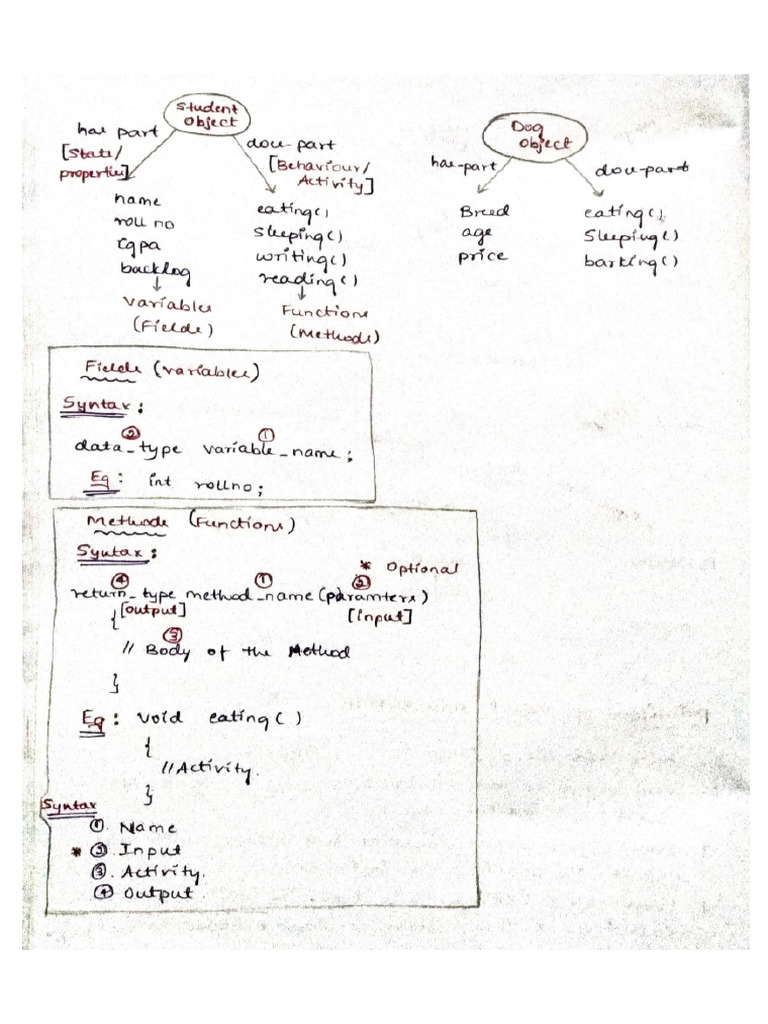 Student
Object
has part
[State/
properties]
does-part
[Behaviour/
Activity]
name
roll no
cgpa
backlog
variables
(Fields)
eating()
sleeping()
writing()
reading()
Functions
(Methods)
Dog
object
has-part
does-part
Breed
age
price
eating()
Sleeping()
barking()
Fields (variables)
Syntax:
② ①
data_type variable_name;
Eg: int rollno;
Methods (Functions)
Syntax:
* Optional
④ ① ②
return_type method_name(paramters)
[output] [Input]
{
③
// Body of the Method
}
Eg: void eating()
{
//Activity.
}
Syntax
①. Name
* ②. Input
③. Activity.
④ Output.